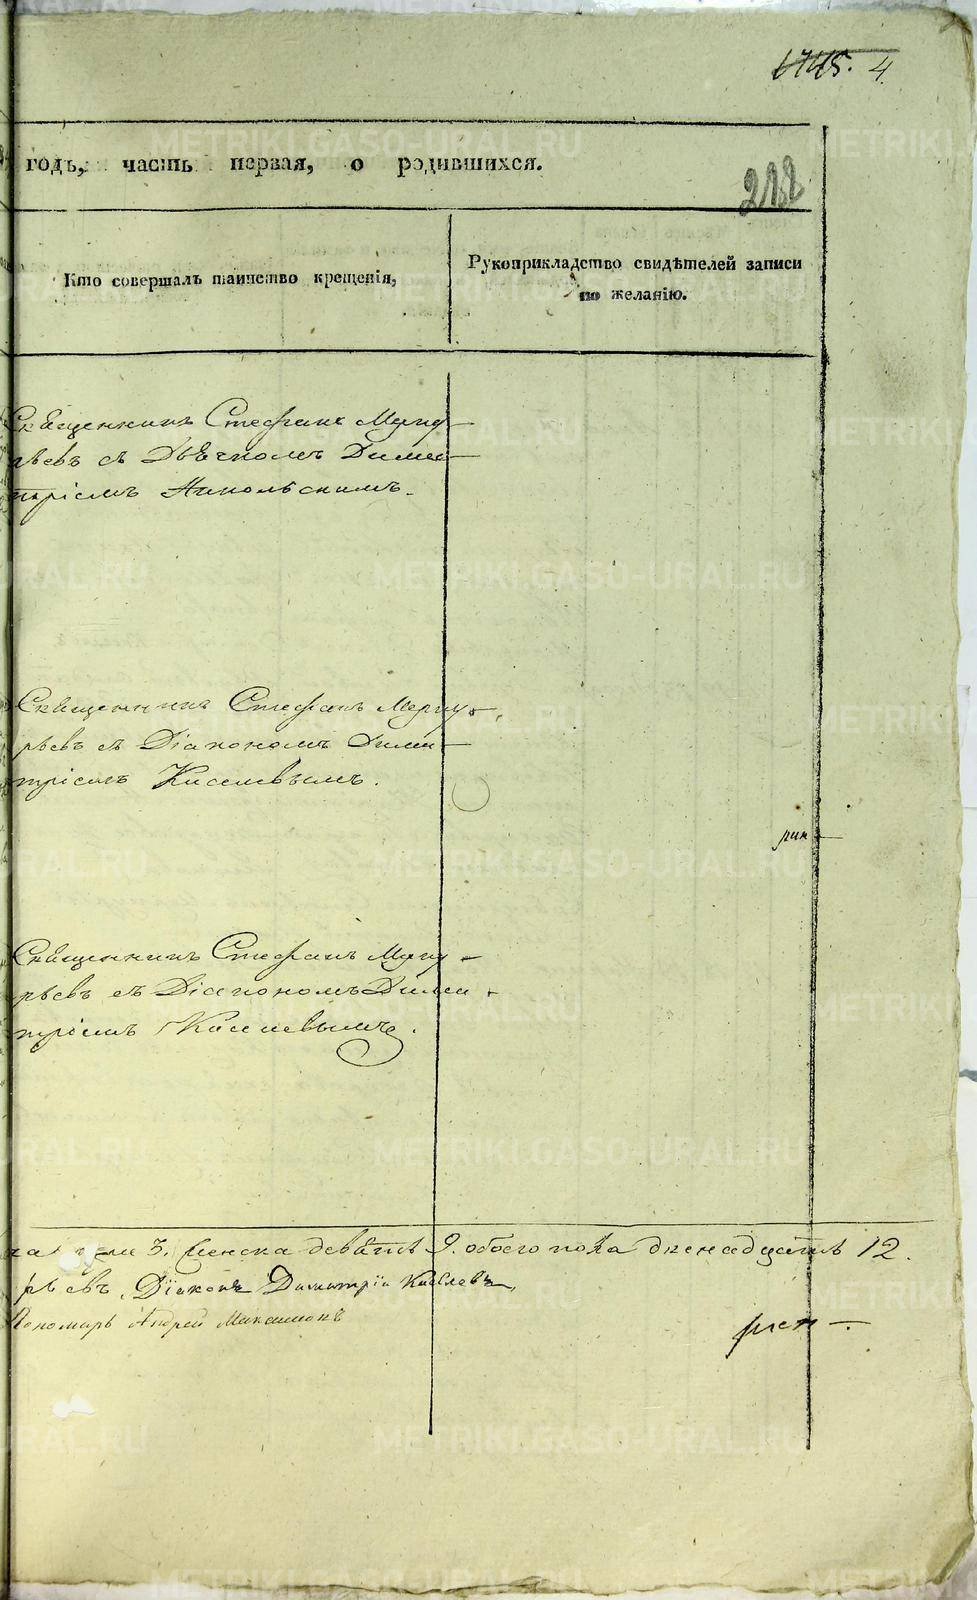 4
годъ, часть первая, о родившихся.
Кто совершалъ таинство крещенія,
Рукоприкладство свидѣтелей записи
по желанію.
Священникъ Стефанъ Мерку-
рьевъ съ Дьячкомъ Дими-
тріемъ Никольскимъ.
Священникъ Стефанъ Мерку-
рьевъ съ Діакономъ Дими-
тріемъ Киселевымъ.
Священникъ Стефанъ Мерку-
рьевъ съ Діакономъ Дими-
тріемъ Киселевымъ.
3. женска девять 9. обоего пола двенадцать 12.
рьевъ. Діаконъ Димитрій Киселевъ,
Пономарь Андрей
METRIKI.GASO-URAL.RU